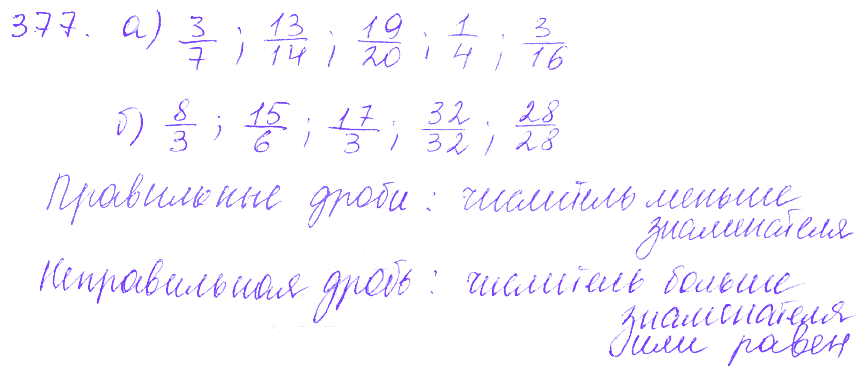 377. а) 3/7 ; 13/14 ; 19/20 ; 1/4 ; 3/16
б) 8/3 ; 15/6 ; 17/3 ; 32/32 ; 28/28
Правильные дроби : числитель меньше
знаменателя
Неправильная дробь : числитель больше
знаменателя
или равен